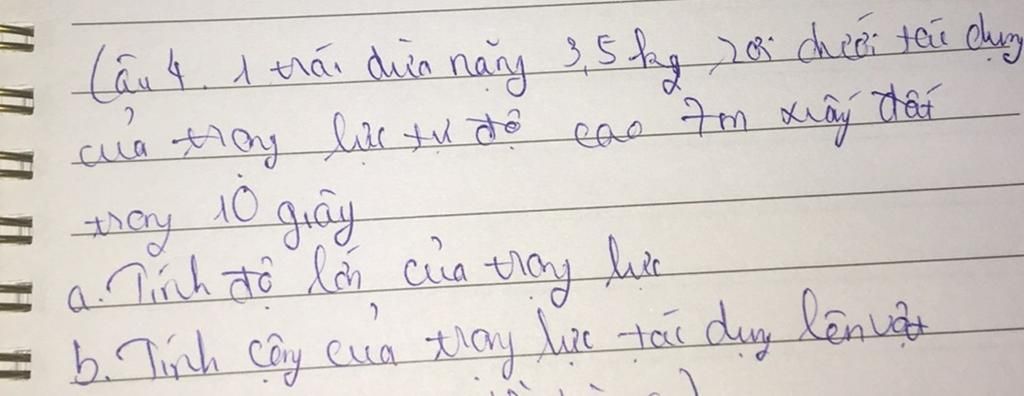 Câu 4. 1 trái dừa nặng 3,5 kg rơi dưới tác dụng
của trọng lực từ độ cao 7m xuống đất
trong 10 giây
a. Tính độ lớn của trọng lực
b. Tính công của trọng lực tác dụng lên vật